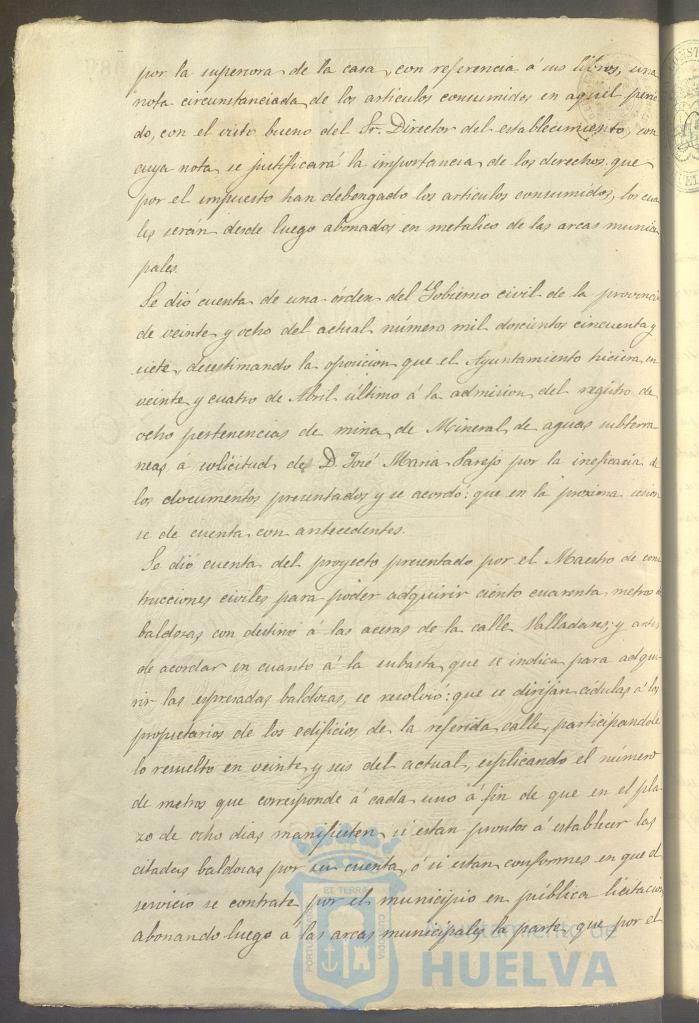 por la superiora de la casa, con referencia á sus libros, una
nota circunstanciada de los articulos consumidos en aquel perio
do, con el visto bueno del Sr. Director del establecimiento, con
cuya nota se justificará la importancia de los derechos que
por el impuesto han debengado los articulos consumidos, los cua
les serán desde luego abonados en metalico de las arcas munici
pales.
Se dió cuenta de una órden del Gobierno civil de la provincia
de veinte y ocho del actual, número mil doscientos cincuenta y
siete, desestimando la oposicion que el Ayuntamiento hiciera en
veinte y cuatro de Abril último á la admision del registro de
ocho pertenencias de mina de Mineral de aguas subterra
neas a solicitud de D. José Maria Parejo por la ineficacia de
los documentos presentados y se acordó: que en la proxima sesion
se de cuenta con antecedentes.
Se dió cuenta del proyecto presentado por el Maestro de cons
trucciones civiles para poder adquirir ciento cuarenta metros de
baldozas con destino á las aceras de la calle Valladares; y antes
de acordar en cuanto á la subasta que se indica para adqui
rir las espresadas baldozas, se resolvió: que se dirijan cédulas á los
propietarios de los edificios de la referida calle, participandole
lo resuelto en veinte y seis del actual, esplicando el número
de metros que corresponde á cada uno á fin de que en el pla
zo de ocho dias manifiesten si estan prontos á establecer las
citadas baldozas por su cuenta, ó si estan conformes en que el
servicio se contrate por el municipio en pública licitacion
abonando luego á las arcas municipales la parte que por el
PORTUS MARIS ET TERRÆ CUSTODIA
Ayuntamiento de
HUELVA